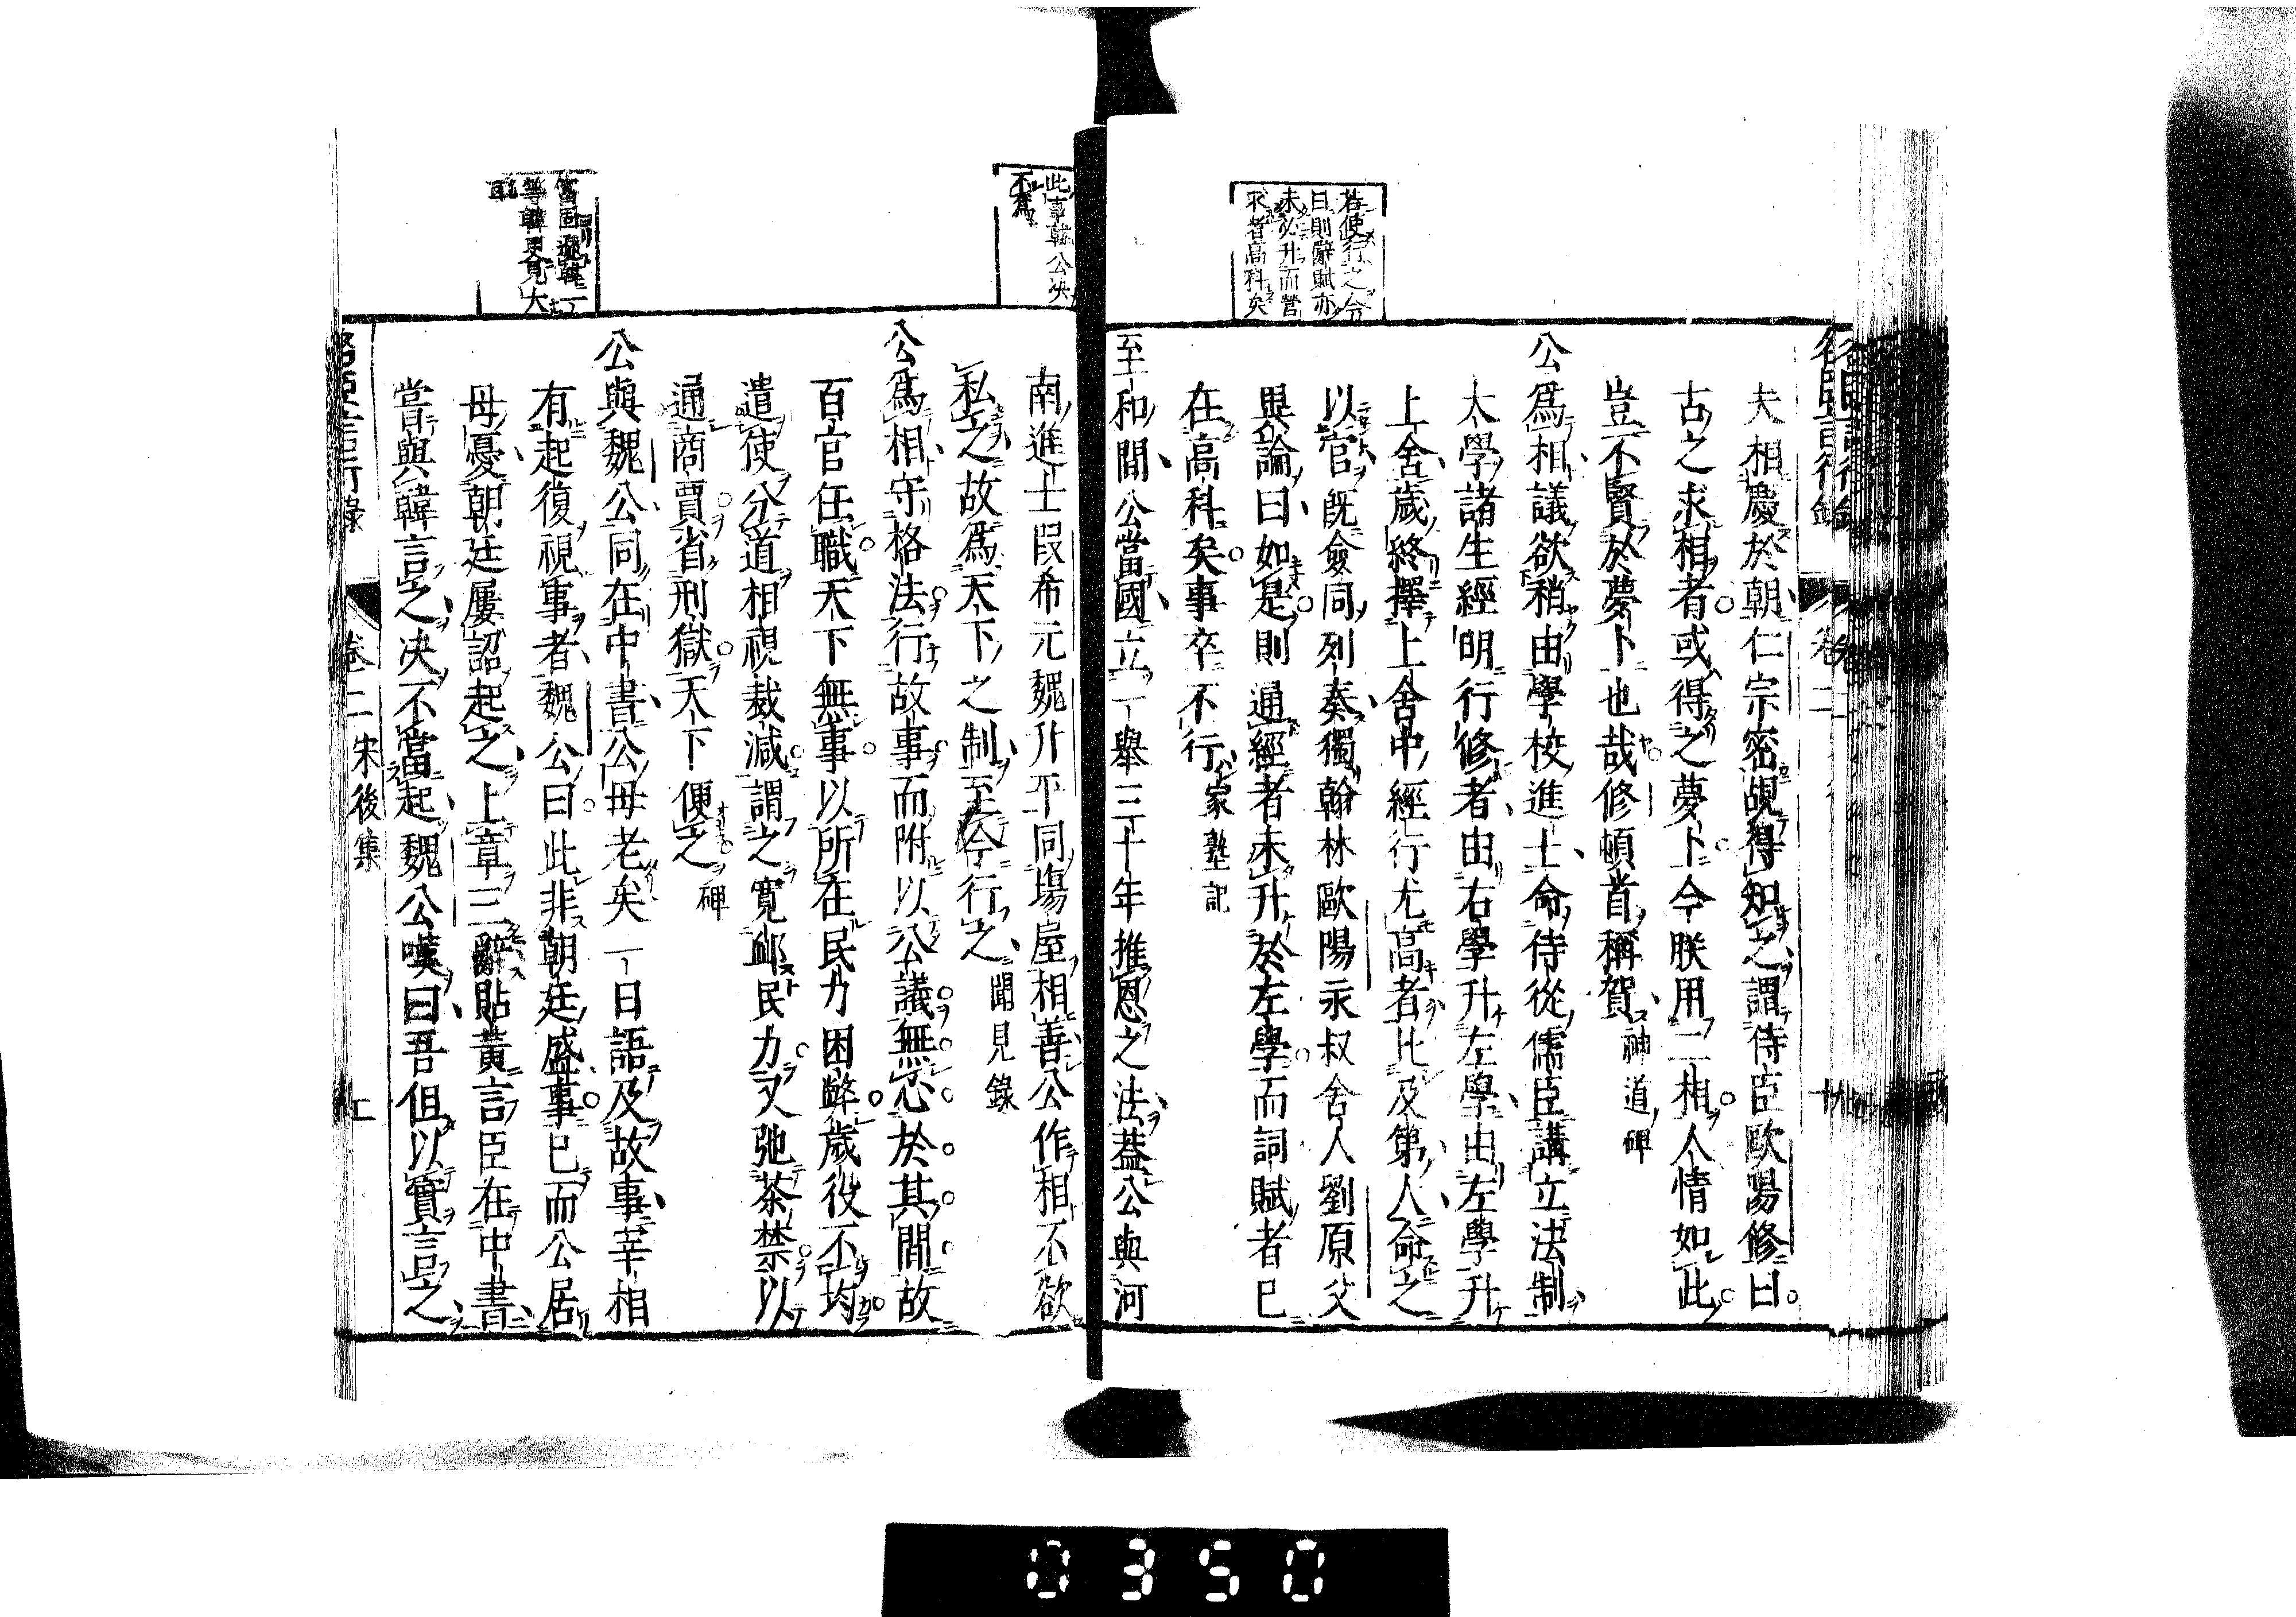 若使行之今
日則辭賦亦
未必升而當
求者高科矣
夫相慶於朝仁宗密覘得知之謂侍臣歐陽修曰
古之求相者或得之夢卜今朕用二相人情如此
豈不賢於夢卜也哉修頓首稱賀神道碑
公爲相議欲稍由學校進士命侍從儒臣講立法制
太學諸生經明行修者由右學升左學由左學升
上舍歲終擇上舍中經行尤高者比及第人命之
以官既僉同列奏獨翰林歐陽永叔舍人劉原父
異論曰如是則通經者未升於左學而詞賦者已
在高科矣事卒不行家塾記
至和間公當國立一舉三十年推恩之法葢公與河
此事韓公決
不爲
南進士段希元魏升平同塲屋相善公作相不欲
私之故爲天下之制至今行之聞見錄
公爲相守格法行故事而附以公議無心於其間故
百官任職天下無事以所在民力困弊歲役不均
遣使分道相視裁減謂之寬卹民力又弛茶禁以
通商賈省刑獄天下便之碑
公與魏公同在中書公母老矣一日語及故事宰相
有起復視事者魏公曰此非朝廷盛事已而公居
母憂朝廷屢詔起之上章三辭貼黃言臣在中書
嘗與韓言之决不當起魏公嘆曰吾但以實言之
等韓更見大
耶
卷二 宋後集